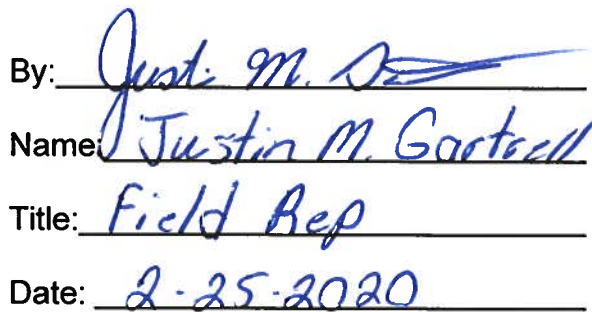 By: Justin M.
Name: Justin M. Gartrell
Title: Field Rep
Date: 2-25-2020